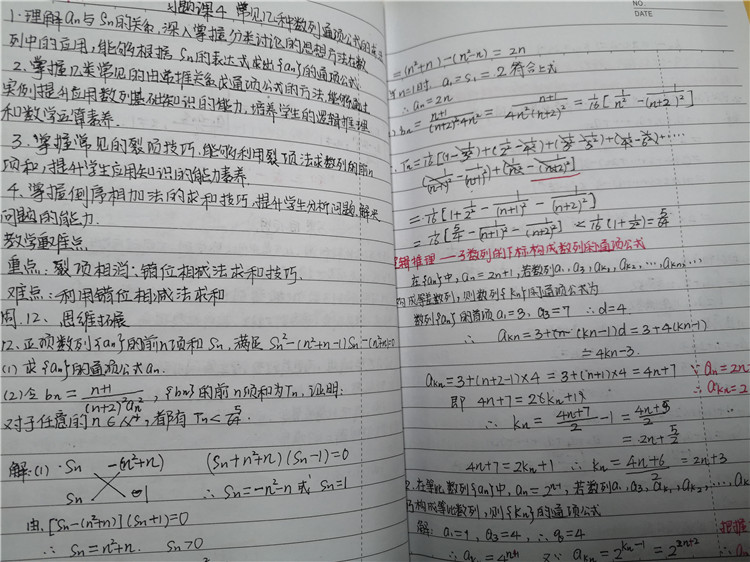 习题课4 常见几种数列通项公式的求法
1.理解an与Sn的关系,深入掌握分类讨论的思想方法在数
列中的应用,能够根据Sn的表达式求出{an}的通项公式.
2.掌握几类常见的由递推关系求通项公式的方法,能够通过
实例提升应用数列基础知识的能力,培养学生的逻辑推理
和数学运算素养.
3.掌握常见的裂项技巧,能够利用裂项法求数列的前n
项和,提升学生应用知识的能力素养.
4.掌握倒序相加法的求和技巧,提升学生分析问题、解决
问题的能力.
教学重难点
重点:裂项相消、错位相减法求和技巧.
难点:利用错位相减法求和
周.12、思维拓展
12.正项数列{an}的前n项和Sn,满足Sn²-(n²+n-1)Sn-(n²+n)=0
(1)求{an}的通项公式an.
(2)令bn=(n+1)/((n+2)²an²),{bn}的前n项和为Tn,证明:
对于任意的n∈N*,都有Tn<5/64.
解:(1)∵Sn -(n²+n) (Sn+n²+n)(Sn-1)=0
Sn -1 ∴Sn=-n²-n或Sn=1
由,[Sn-(n²+n)](Sn+1)=0
∴Sn=n²+n. Sn>0
=(n²+n)-(n²-n)=2n
n=1时.a₁=S₁=2符合上式
∴an=2n
bn=(n+1)/((n+2)²4n²)=(n+1)/(4n²(n+2)²)=1/16[1/n²-1/(n+2)²]
Tn=1/16[(1-1/3²)+(1/2²-1/4²)+(1/3²-1/5²)+(1/4²-1/6²)+····
(1/(n-1)²-1/(n+1)²)+(1/n²-1/(n+2)²)]
=1/16[1+1/2²-1/(n+1)²-1/(n+2)²]
=1/16[5/4-1/(n+1)²-1/(n+2)²]<1/16(1+1/2²)=5/64
推理——子数列的下标构成数列的通项公式
在{an}中,an=2n+1,若数列a₁,a₃,ak₁,ak₂,…,akn,…
构成等差数列,则数列{kn}的通项公式为
数列{an}的首项a₁=3,a₃=7 ∴d=4.
∴akn=3+(kn-1)d=3+4(kn-1)
=4kn-3.
akn=3+(n+2-1)×4=3+(n+1)×4=4n+7 ∵an=2n
即4n+7=2kn+1 ∴akn=2
∴kn=(4n+7)/2-1=(4n+5)/2
=2n+5/2
4n+7=2kn+1 ∴kn=(4n+6)/2=2n+3
2.在等比数列{an}中,an=2ⁿ⁻¹,若数列a₁,a₃,ak₁,ak₂,…,ak
构成等比数列,则{kn}的通项公式
解:a₁=1,a₃=4,∴q=4 把握
∴ak=4ⁿ⁺¹ 又∵akn=2^(kn-1)=2^(2n+2)